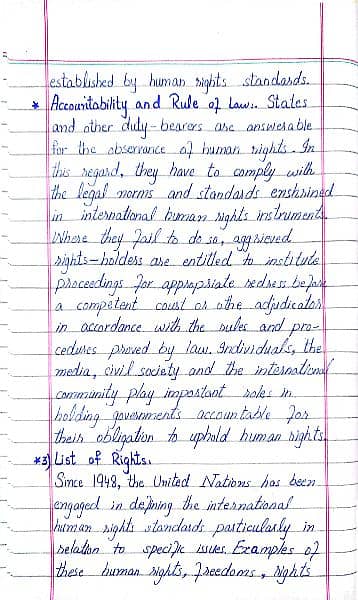 established by human rights standards.
* Accountability and Rule of Law:. States
and other duty-bearers are answerable
for the observance of human rights. In
this regard, they have to comply with
the legal norms and standards enshrined
in international human rights instruments.
Where they fail to do so, aggrieved
rights-holders are entitled to institute
proceedings for appropriate redress before
a competent court or othe adjudicator
in accordance with the rules and pro-
cedures proved by law. Individuals, the
media, civil society and the international
community play important roles in
holding governments accountable for
their obligation to uphold human rights.
*3) List of Rights.
Since 1948, the United Nations has been
engaged in defining the international
human rights standards particularly in
relation to specific issues. Examples of
these human rights, freedoms, rights